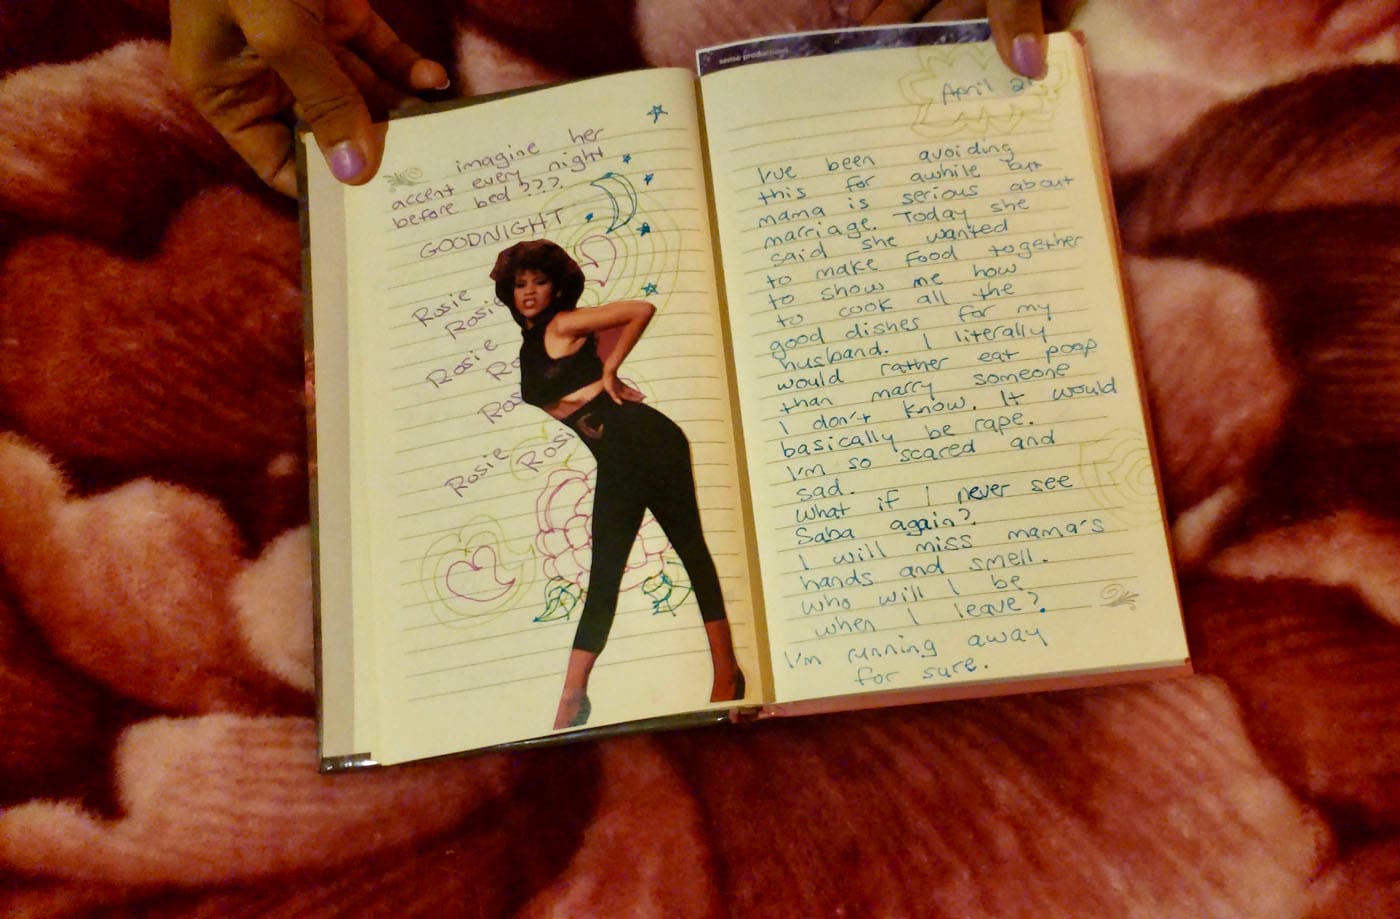 imagine her
accent every night
before bed???
GOODNIGHT
Rosie
Rosie
Rosie
Ro
Ros
Rosie
Rosi
April 2
I've been avoiding
this for awhile but
mama is serious about
marriage. Today she
said she wanted
to make food together
to show me how
to cook all the
good dishes for my
husband. I literally
would rather eat poop
than marry someone
I don't know. It would
basically be rape.
I'm so scared and
sad.
What if I never see
Saba again?
I will miss mama's
hands and smell.
Who will I be
when I leave?
I'm running away
for sure.